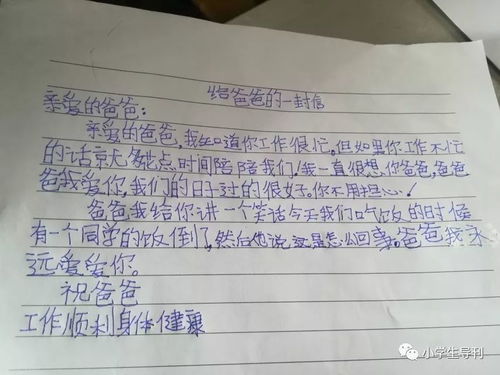 给爸爸的一封信
亲爱的爸爸：
亲爱的爸爸，我知道你工作很忙。但如果你工作不忙
的话就多抽点时间陪陪我们！我一直很想你爸爸，爸爸
爸我爱你，我们的日子过的很好。你不用担心！
爸爸我给你讲一个笑话今天我们吃饭的时候
有一个同学的饭倒了，然后他说这是怎么回事。爸爸我永
远爱爱你。
祝爸爸
工作顺利身体健康
小学生导刊